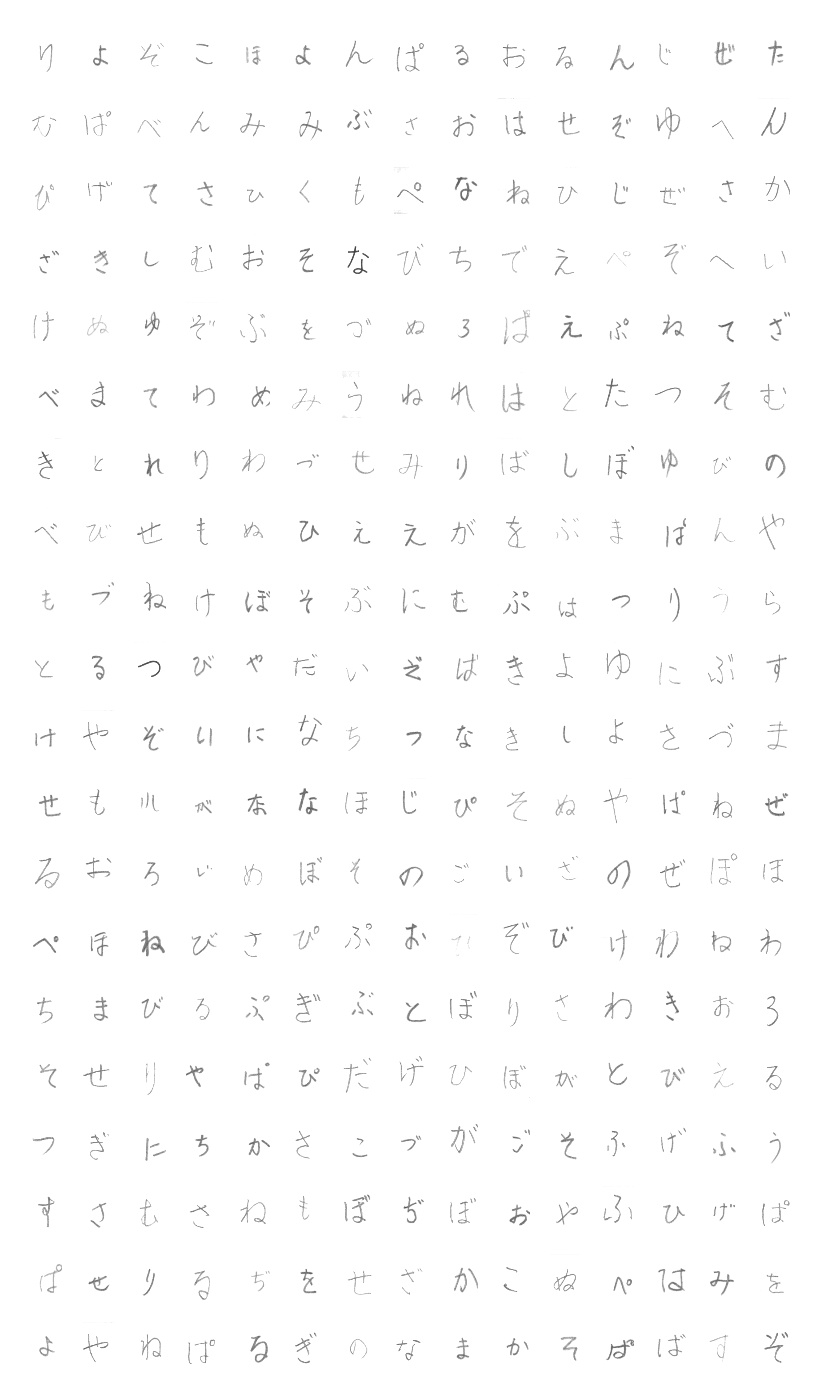 りよぞこほよんぱるおるんじぜた
なぱべんみみぶさおはせぞゆへん
ぴげてさひくもぺなねひじぜさか
ざきしむおそなびちでえぺぞへい
けぬゆぞぷをづぬろぱえぷねてざ
べまてわめみうねれはとたつそむ
きとれりわづせみりばしぼゆびの
べびせもぬひええがをぶまぱんや
もづねけぼそぶにむぷはつりうら
とるつびやだいざばきよゆにぶす
けやぞいになちつなきしよさづま
せもれがほなほじぴそぬやぱねぜ
るおろじめぼそのごいざのぜぽほ
ぺほねびさぴぷおひぞびけわねわ
ちまびるぷぎぶとぼりさわきおろ
そせりやぱぴだげひぼがとびえる
つぎにちかさこづがごそふげふう
すさむさねもぼぢぼおやふひげぱ
ぱせりるぢをせざかこぬぺはみを
よやねぱるぎのなまかそばばすぞ